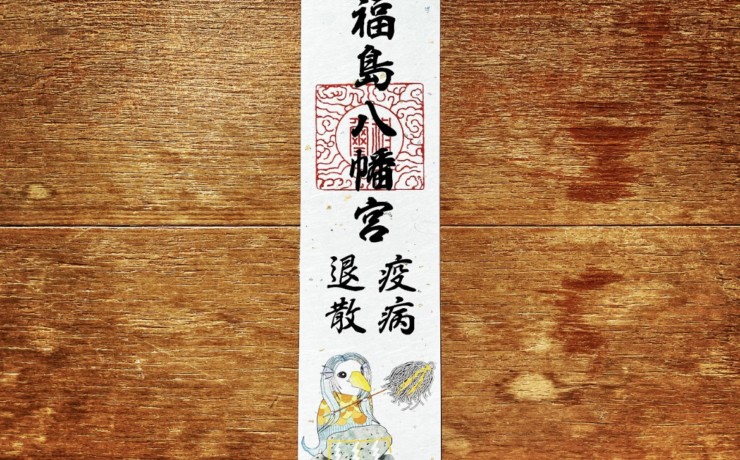 福島八幡宮
疫病
退散